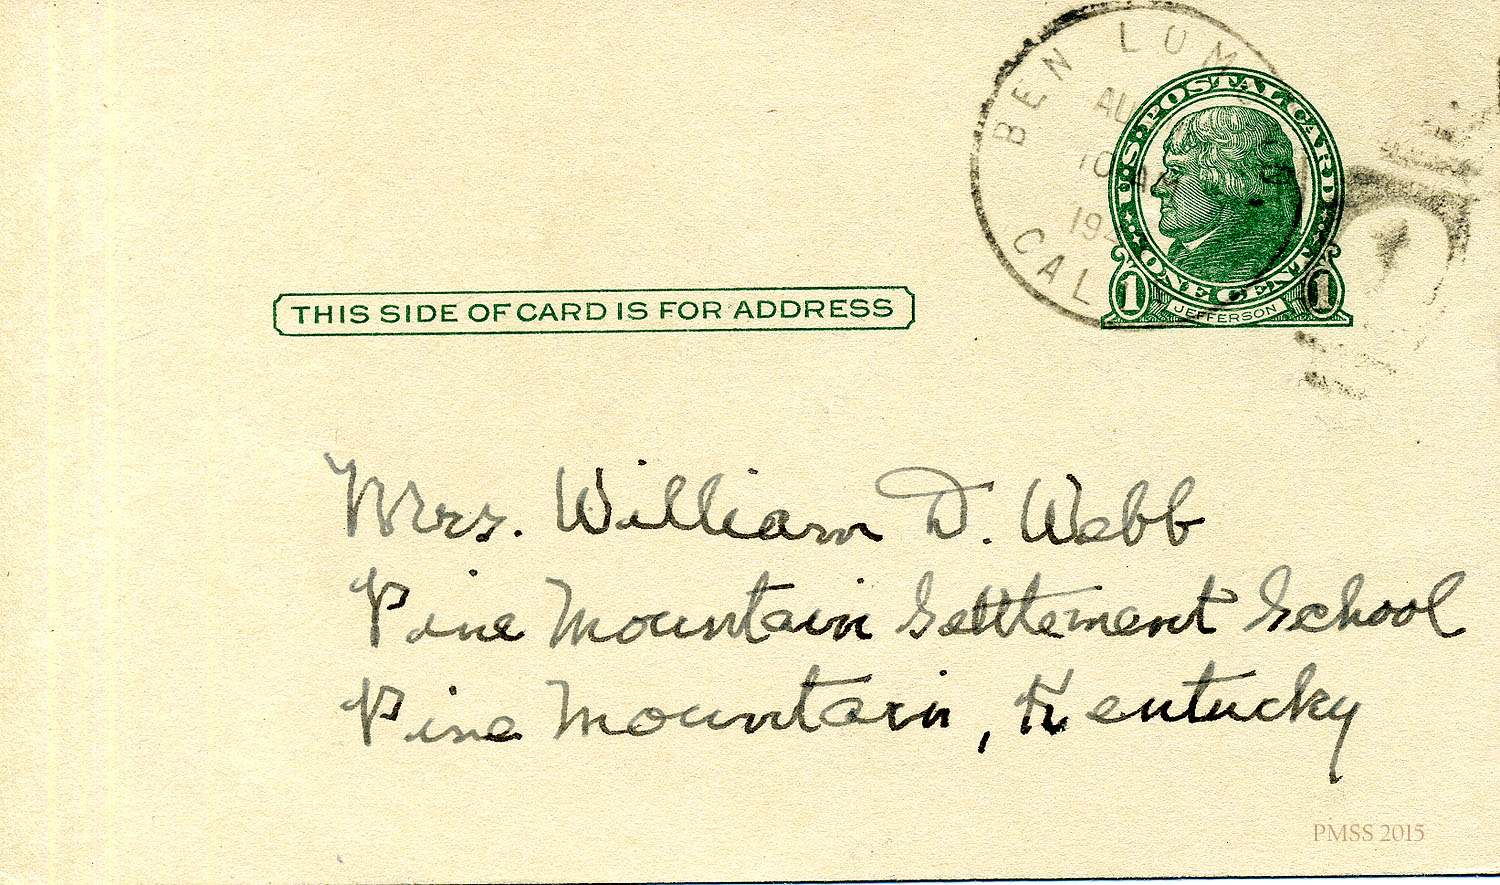 BEN LOM
AU
10 AM
19
CAL
U.S. POSTAL CARD
ONE CENT
1 JEFFERSON 1
THIS SIDE OF CARD IS FOR ADDRESS
Mrs. William D. Webb
Pine Mountain Settlement School
Pine Mountain, Kentucky
PMSS 2015